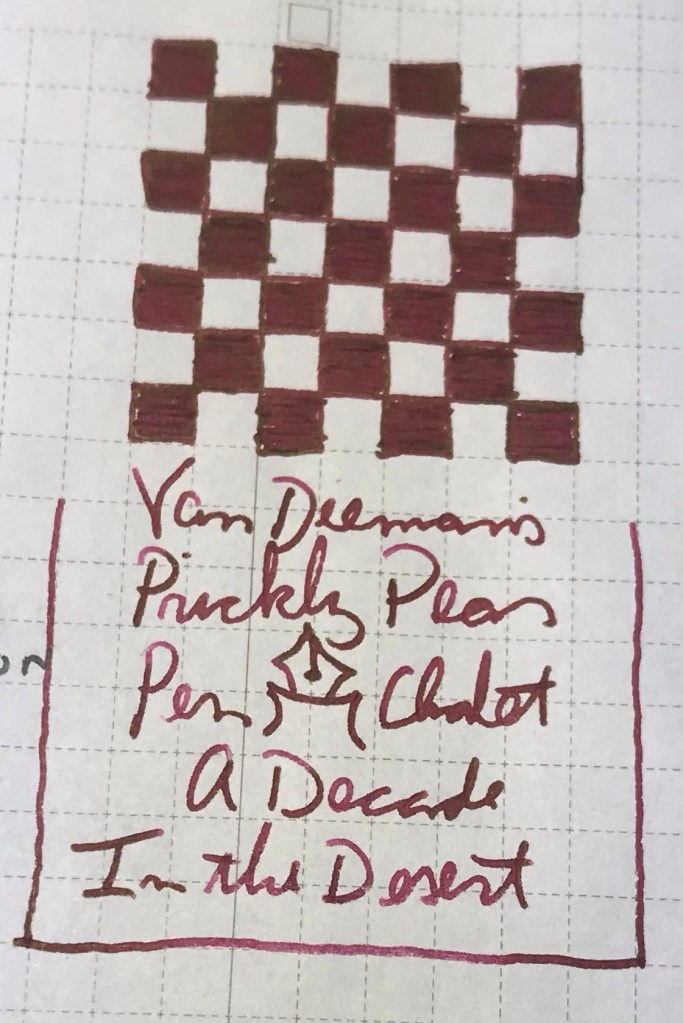 Van Dieman's
Prickly Pear
Pen Chalet
A Decade
In the Desert
on